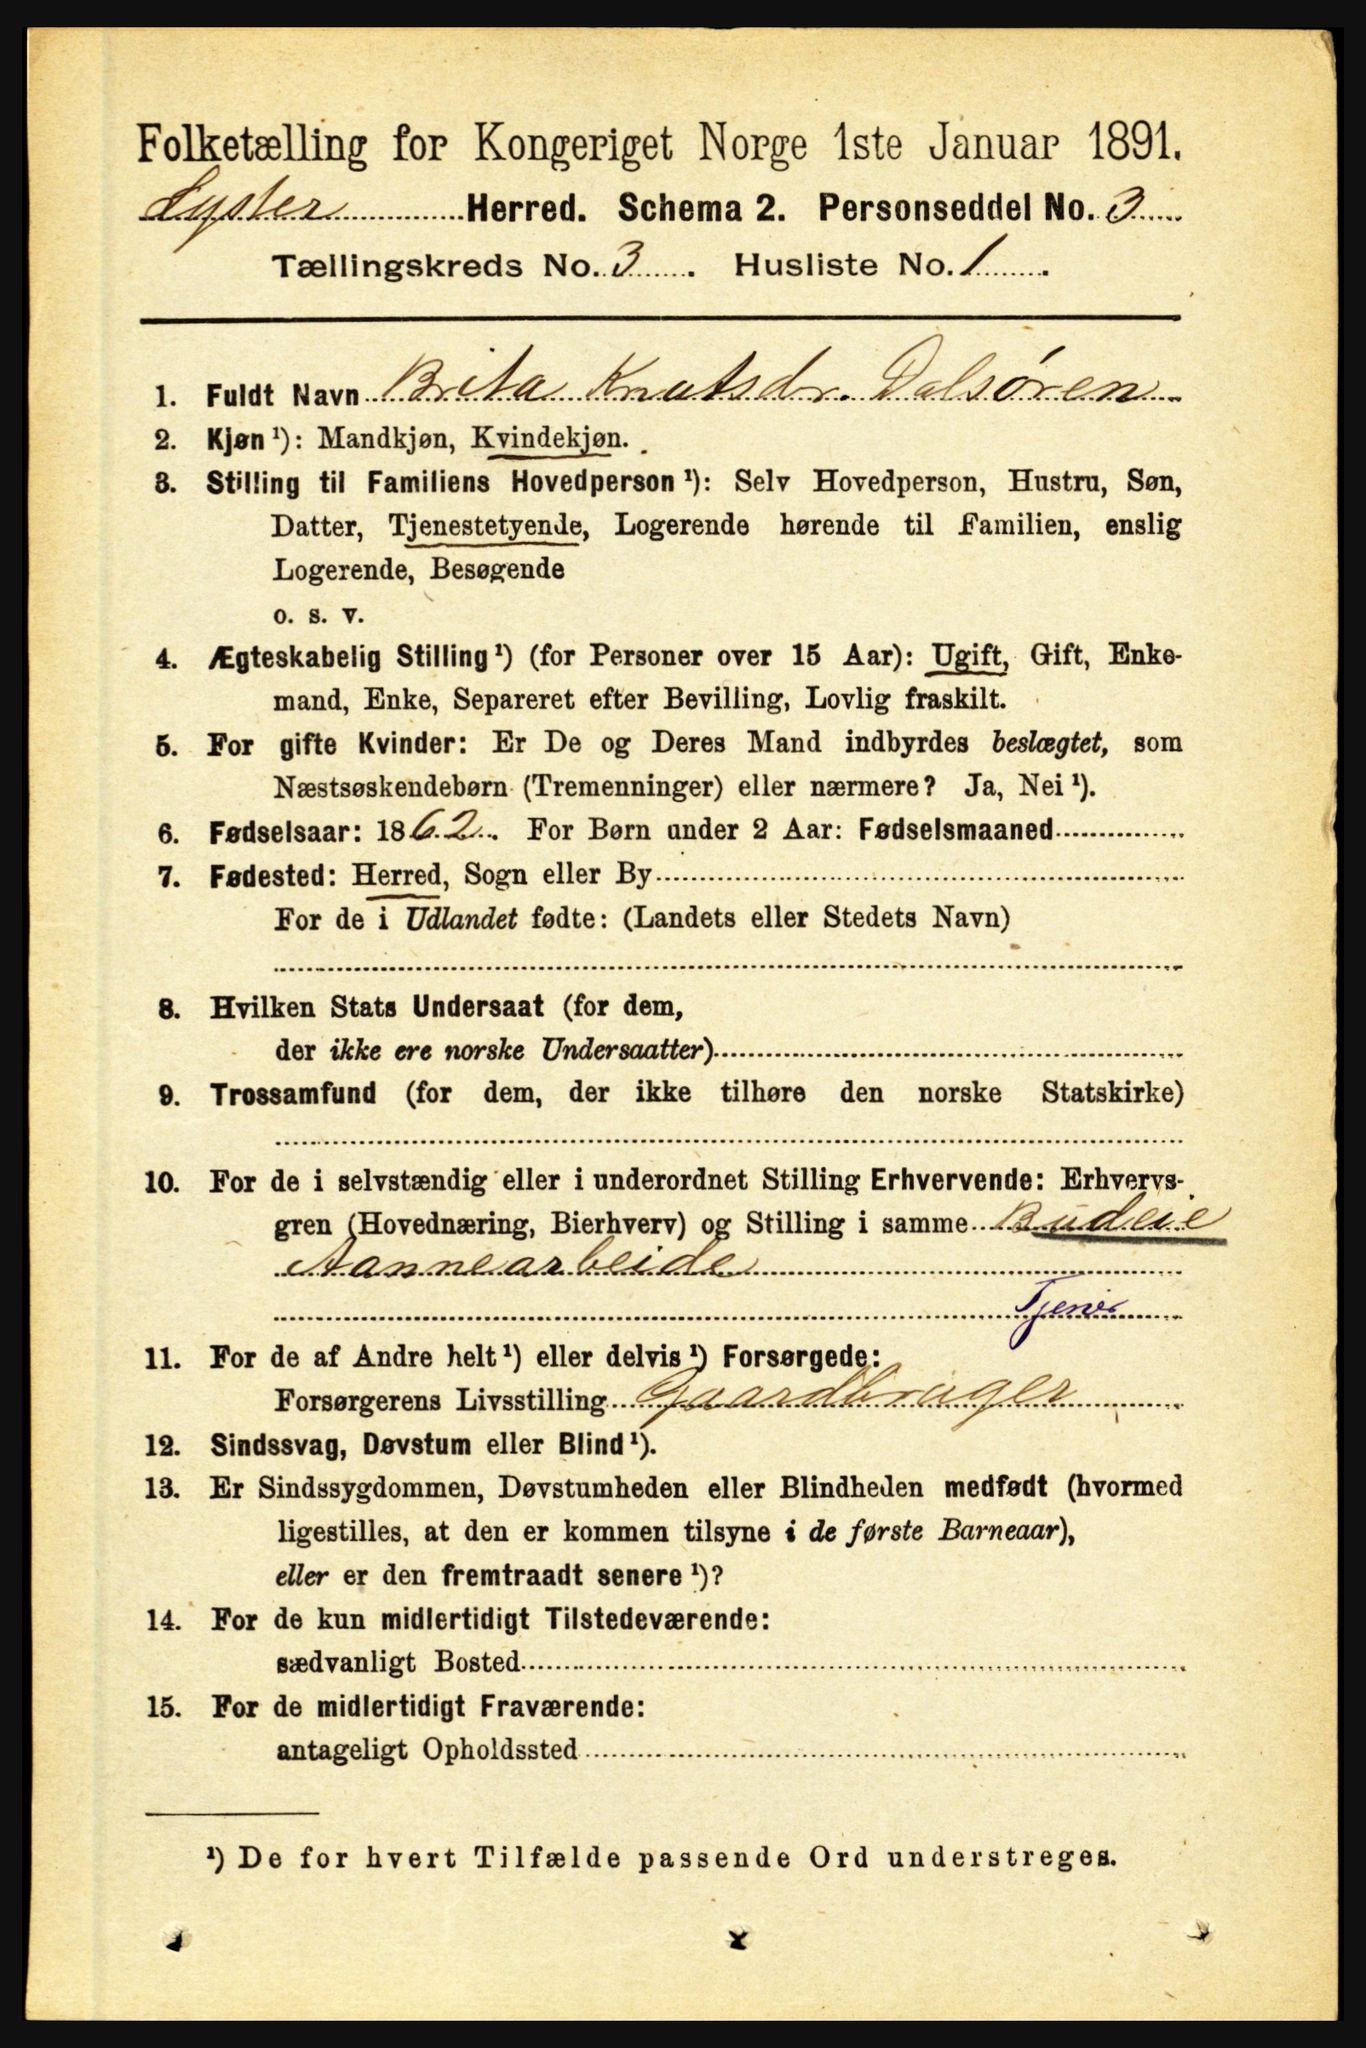 Folketælling for Kongeriget Norge 1ste Januar 1891.
Lyster Herred. Schema 2. Personseddel No. 3
Tællingskreds No. 3 . Husliste No. 1 .
1. Fuldt Navn Brita Knutsdr. Dalsøren
2. Kjøn ¹): Mandkjøn, Kvindekjøn.
3. Stilling til Familiens Hovedperson ¹): Selv Hovedperson, Hustru, Søn,
Datter, Tjenestetyende, Logerende hørende til Familien, enslig
Logerende, Besøgende
o. s. v.
4. Ægteskabelig Stilling ¹) (for Personer over 15 Aar): Ugift, Gift, Enke-
mand, Enke, Separeret efter Bevilling, Lovlig fraskilt.
5. For gifte Kvinder: Er De og Deres Mand indbyrdes beslægtet, som
Næstsøskendebørn (Tremenninger) eller nærmere? Ja, Nei ¹).
6. Fødselsaar: 1862. For Børn under 2 Aar: Fødselsmaaned
7. Fødested: Herred, Sogn eller By
For de i Udlandet fødte: (Landets eller Stedets Navn)
8. Hvilken Stats Undersaat (for dem,
der ikke ere norske Undersaatter)
9. Trossamfund (for dem, der ikke tilhøre den norske Statskirke)
10. For de i selvstændig eller i underordnet Stilling Erhvervende: Erhvervs-
gren (Hovednæring, Bierhverv) og Stilling i samme Budeie
Aannearbeide
Tjener
11. For de af Andre helt ¹) eller delvis ¹) Forsørgede:
Forsørgerens Livsstilling Gaardbruger
12. Sindssvag, Døvstum eller Blind ¹).
13. Er Sindssygdommen, Døvstumheden eller Blindheden medfødt (hvormed
ligestilles, at den er kommen tilsyne i de første Barneaar),
eller er den fremtraadt senere ¹)?
14. For de kun midlertidigt Tilstedeværende:
sædvanligt Bosted
15. For de midlertidigt Fraværende:
antageligt Opholdssted
¹) De for hvert Tilfælde passende Ord understreges.